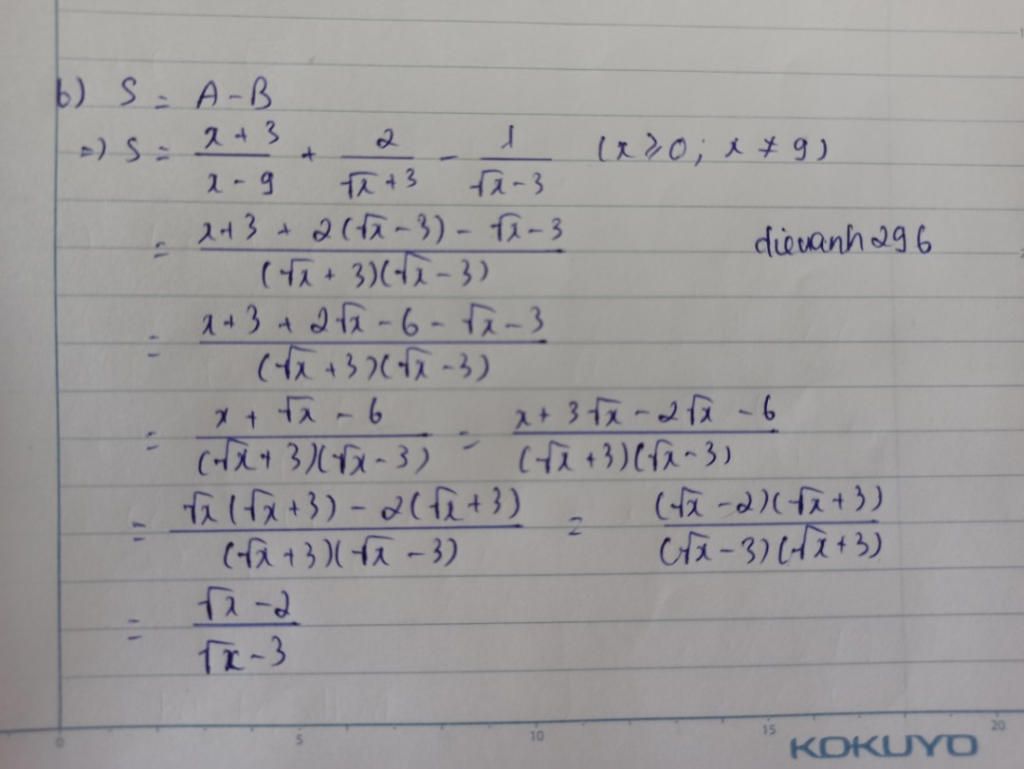 b) S = A - B
=) S = (x + 3)/(x - 9) + 2/(√x + 3) - 1/(√x - 3) (x ≥ 0; x ≠ 9)
= (x + 3 + 2(√x - 3) - √x - 3)/((√x + 3)(√x - 3))
dieuanh296
= (x + 3 + 2√x - 6 - √x - 3)/((√x + 3)(√x - 3))
= (x + √x - 6)/((√x + 3)(√x - 3)) = (x + 3√x - 2√x - 6)/((√x + 3)(√x - 3))
= (√x(√x + 3) - 2(√x + 3))/((√x + 3)(√x - 3)) = ((√x - 2)(√x + 3))/((√x - 3)(√x + 3))
= (√x - 2)/(√x - 3)
0 5 10 15 20
KOKUYO